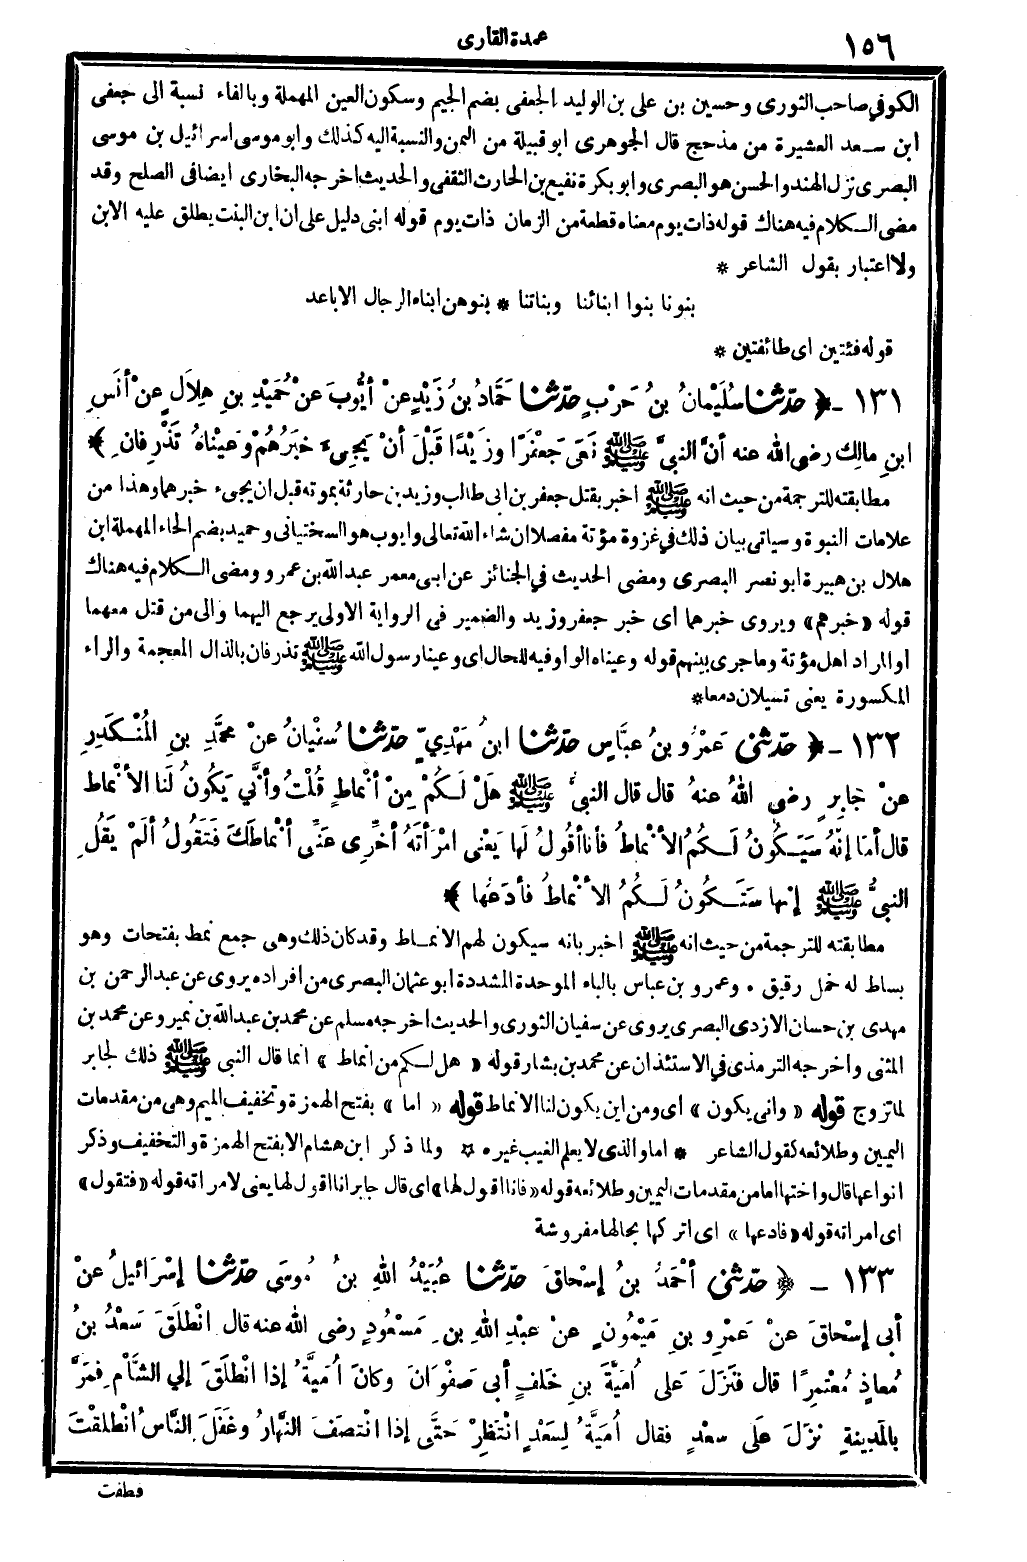 ١٥٦
عمدة القارى
الكوفي صاحب الثورى وحسين بن على بن الوليد الجعفى بضم الجيم وسكون العين المهملة وبالفاء نسبة الى جعفى
ابن سعد العشيرة من مذحج قال الجوهرى ابو قبيلة من اليمن والنسبة اليه كذلك وابو موسى اسرائيل بن موسى
البصرى نزل الهند والحسن هو البصرى وابو بكرة نفيع بن الحارث الثقفى والحديث اخرجه البخارى ايضا فى الصلح وقد
مضى الكلام فيه هناك قوله ذات يوم معناه قطعة من الزمان ذات يوم قوله ابنى دليل على ان ابن البنت يطلق عليه الابن
ولا اعتبار بقول الشاعر *
بنونا بنوا ابنائنا وبناتنا * بنوهن ابناء الرجال الاباعد
قوله فئتين اى طائفتين *
١٣١ - ﴿ حدّثنا سُلَيْمانُ بنُ حَرْبٍ حدّثنا حَمَّادُ بنُ زَيْدٍ عنْ أيُّوبَ عَنْ حُمَيْدِ بنِ هِلَالٍ عنْ أنَسِ
ابنِ مالِك رضى الله عنه أنَّ النبيَّ ﷺ نَعَى جَعْفَرًا وزَيْدًا قَبْلَ أنْ يَجِىءَ خبَرُهُمْ وعَيْناهُ تَذْرِفانِ ﴾
مطابقته للترجمة من حيث انه ﷺ اخبر بقتل جعفر بن ابى طالب وزيد بن حارثة بموته قبل ان يجىء خبرهما وهذا من
علامات النبوة وسياتى بيان ذلك في غزوة مؤتة مفصلا ان شاء الله تعالى وايوب هو السختيانى وحميد بضم الحاء المهملة ابن
هلال بن هبيرة ابو نصر البصرى ومضى الحديث في الجنائز عن ابى معمر عبد الله بن عمرو ومضى الكلام فيه هناك
قوله «خبرهم» ويروى خبرهما اى خبر جعفر وزيد والضمير فى الرواية الاولى يرجع اليهما والى من قتل معهما
او المراد اهل مؤتة وما جرى بينهم قوله وعيناه الواو فيه للحال اى وعينا رسول الله ﷺ تذرفان بالذال المعجمة والراء
المكسورة يعنى تسيلان دمعا*
١٣٢ - ﴿ حدّثنى عَمْرُو بنُ عبَّاسٍ حدّثنا ابنُ مَهْدِيٍّ حدّثنا سُفْيانُ عنْ محمَّدِ بنِ المُنْكَدِرِ
عنْ جابِرٍ رضى اللهُ عنهُ قال قال النبىُّ ﷺ هَلْ لَكُمْ مِنْ أنْماطٍ قُلْتُ وأنَّي يَكُونُ لَنا الأنْماط
قال أمَا إنَّهُ سَيَكُونُ لَكُمُ الأنْماطُ فأنا أقُولُ لَها يَعْنى امْرَأتَهُ أخِّرِى عَنِّى أنْماطَكَ فَتَقُولُ ألَمْ يَقُلِ
النبيُّ ﷺ إنَّها سَتَكُونُ لَكُمُ الأنْماطُ فأدَعُها ﴾
مطابقته للترجمة من حيث انه ﷺ اخبر بانه سيكون لهم الانماط وقد كان ذلك وهى جمع نمط بفتحات وهو
بساط له خمل رقيق . وعمرو بن عباس بالباء الموحدة المشددة ابو عثمان البصرى من افراده يروى عن عبد الرحمن بن
مهدى بن حسان الازدى البصرى يروى عن سفيان الثورى والحديث اخرجه مسلم عن محمد بن عبد الله بن نمير وعن محمد بن
المثنى واخرجه الترمذى في الاستئذان عن محمد بن بشار قوله «هل لكم من انماط» انما قال النبى ﷺ ذلك لجابر
لما تزوج قوله «وانى يكون» اى ومن اين يكون لنا الانماط قوله «اما» بفتح الهمزة وتخفيف الميم وهى من مقدمات
اليمين وطلائعه كقول الشاعر * اما والذى لا يعلم الغيب غيره * ولما ذكر ابن هشام الا بفتح الهمزة والتخفيف وذكر
انواعها قال واختها اما من مقدمات اليمين وطلائعه قوله «فانا اقول لها» اى قال جابر انا اقول لها يعنى لامراته قوله «فتقول»
اى امراته قوله «فادعها» اى اتركها بحالها مفروشة
١٣٣ - ﴿ حدّثنى أحْمَدُ بنُ إسْحاقَ حدّثنا عُبَيْدُ اللهِ بنُ مُوسَى حدّثنا إسْرَائيلُ عنْ
أبى إسْحاقَ عنْ عَمْرِو بنِ مَيْمُونٍ عنْ عبْدِ اللهِ بنِ مَسْعُودٍ رضى الله عنه قال انْطلَقَ سَعْدُ بنُ
مُعاذٍ مُعْتمِرًا قال فنَزَلَ عَلى أُمَيَّةَ بنِ خَلَفٍ أبى صَفْوَانَ وكانَ أُمَيَّةُ إذا انْطلَقَ إلي الشَّأْمِ فمَرَّ
بالمَدِينةِ نزَلَ علَى سعْدٍ فقال أُمَيَّةُ لِسَعْدٍ انْتَظِرْ حَتَّى إذا انْتصَفَ النَّهارُ وغَفَلَ النَّاسُ انْطلقْتَ
فطفت